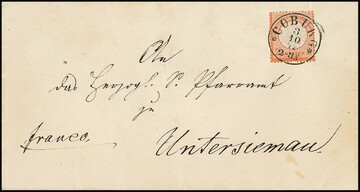 COBURG
3
10
2-3N
An
das Herzogl. S. Pfarramt
zu
franco.
Untersiemau.